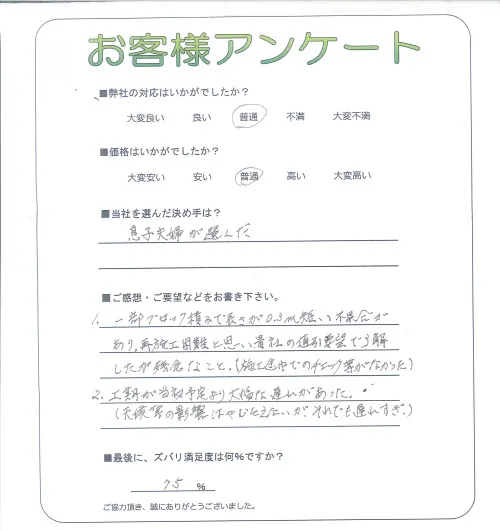 お客様アンケート
■弊社の対応はいかがでしたか？
大変良い 良い 普通 不満 大変不満
■価格はいかがでしたか？
大変安い 安い 普通 高い 大変高い
■当社を選んだ決め手は？
息子夫婦が選んだ
■ご感想・ご要望などをお書き下さい。
1. 一部ブロック積みで長さが0.3m短い不具合が
あり,再施工困難と思い,貴社の値引要望で了解
したが残念なこと。(施工途中でのチェック等がなかった)
2. 工期が当初予定より大幅な遅れがあった。
(天候等の影響はやむをえないが、それでも遅れすぎ。)
■最後に、ズバリ満足度は何％ですか？
75 ％
ご協力頂き、誠にありがとうございました。